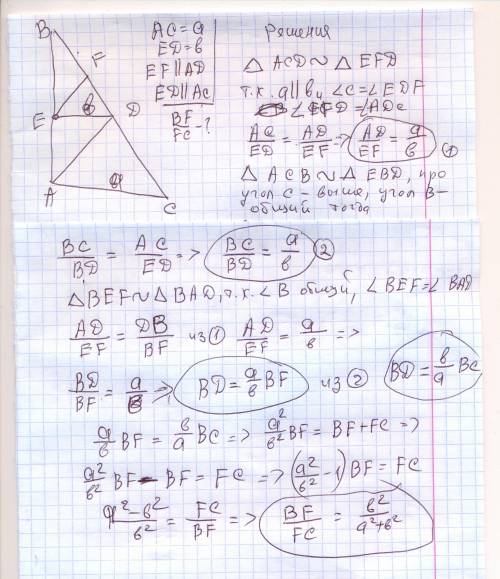 B
F
E
в
D
A
a
C
AC = a
ED = в
EF || AD
ED || AC
BF/FC - ?
Решения
△ ACD ∾ △ EFD
т.к. a||в и ∠C = ∠EDF
∠EFD = ∠ADC
AC/ED = AD/EF => AD/EF = a/в ①
△ ACB ∾ △ EBD, про
угол C – выше, угол B –
общий тогда
BC/BD = AC/ED => BC/BD = a/в ②
△BEF ∾ △BAD, т.к. ∠B общий, ∠BEF = ∠BAD
AD/EF = DB/BF из ① AD/EF = a/в =>
BD/BF = a/в => BD = a/в BF из ② BD = в/a BC
a/в BF = в/a BC => a²/в² BF = BF + FC =>
a²/в² BF - BF = FC => (a²/в² - 1) BF = FC
a² - в²/в² = FC/BF => BF/FC = в²/a² + в²